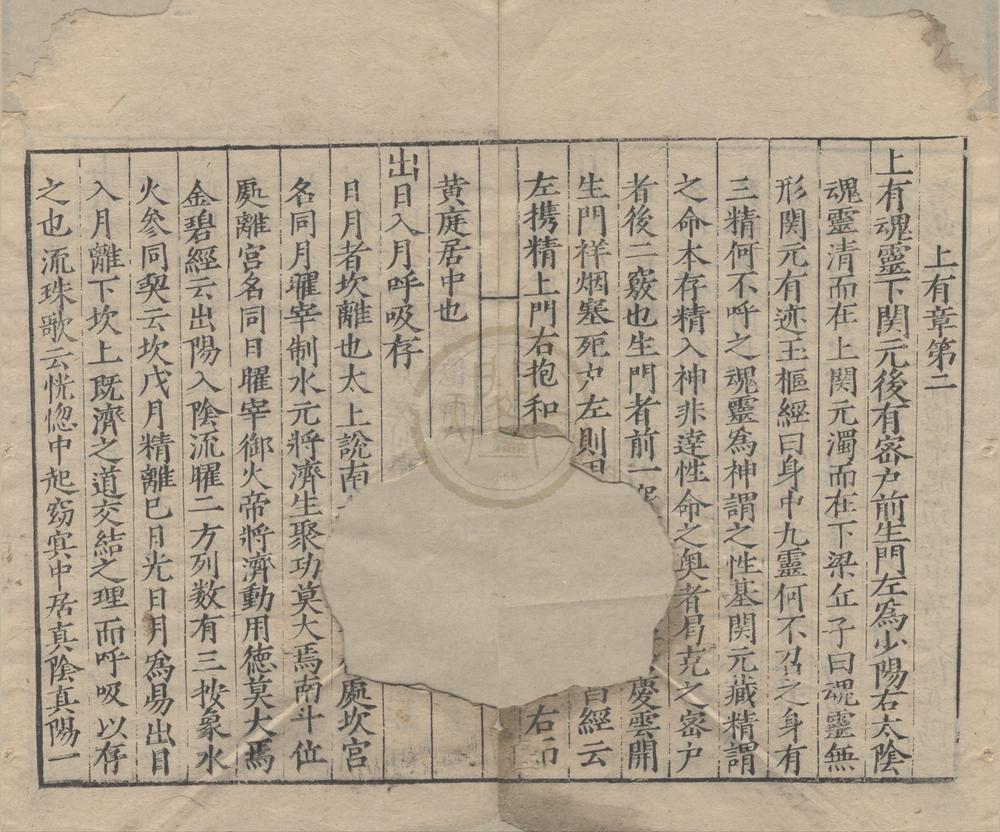 上有章第二
上有魂靈下関元後有密户前生門左為少陽右太陰
魂靈清而在上関元濁而在下梁丘子曰魂靈無
形関元有迹玉樞經曰身中九靈何不召之身有
三精何不呼之魂靈為神謂之性基関元藏精謂
之命本存精入神非逹性命之奥者曷克之密户
者後二竅也生門者前一 慶雲開
生門祥烟塞死户左則 經云
左携精上門右抱和 右
黄庭居中也
出日入月呼吸存
日月者坎離也太上說南 處坎宫
名同月曜宰制水元將濟生聚功莫大焉南斗位
處離宫名同日曜宰御火帝將濟動用徳莫大焉
金碧經云出陽入陰流曜二方列数有三按象水
火參同契云坎戊月精離巳日光日月為易出日
入月離下坎上既濟之道交結之理而呼吸以存
之也流珠歌云恍惚中起窈寞中居真陰真陽一